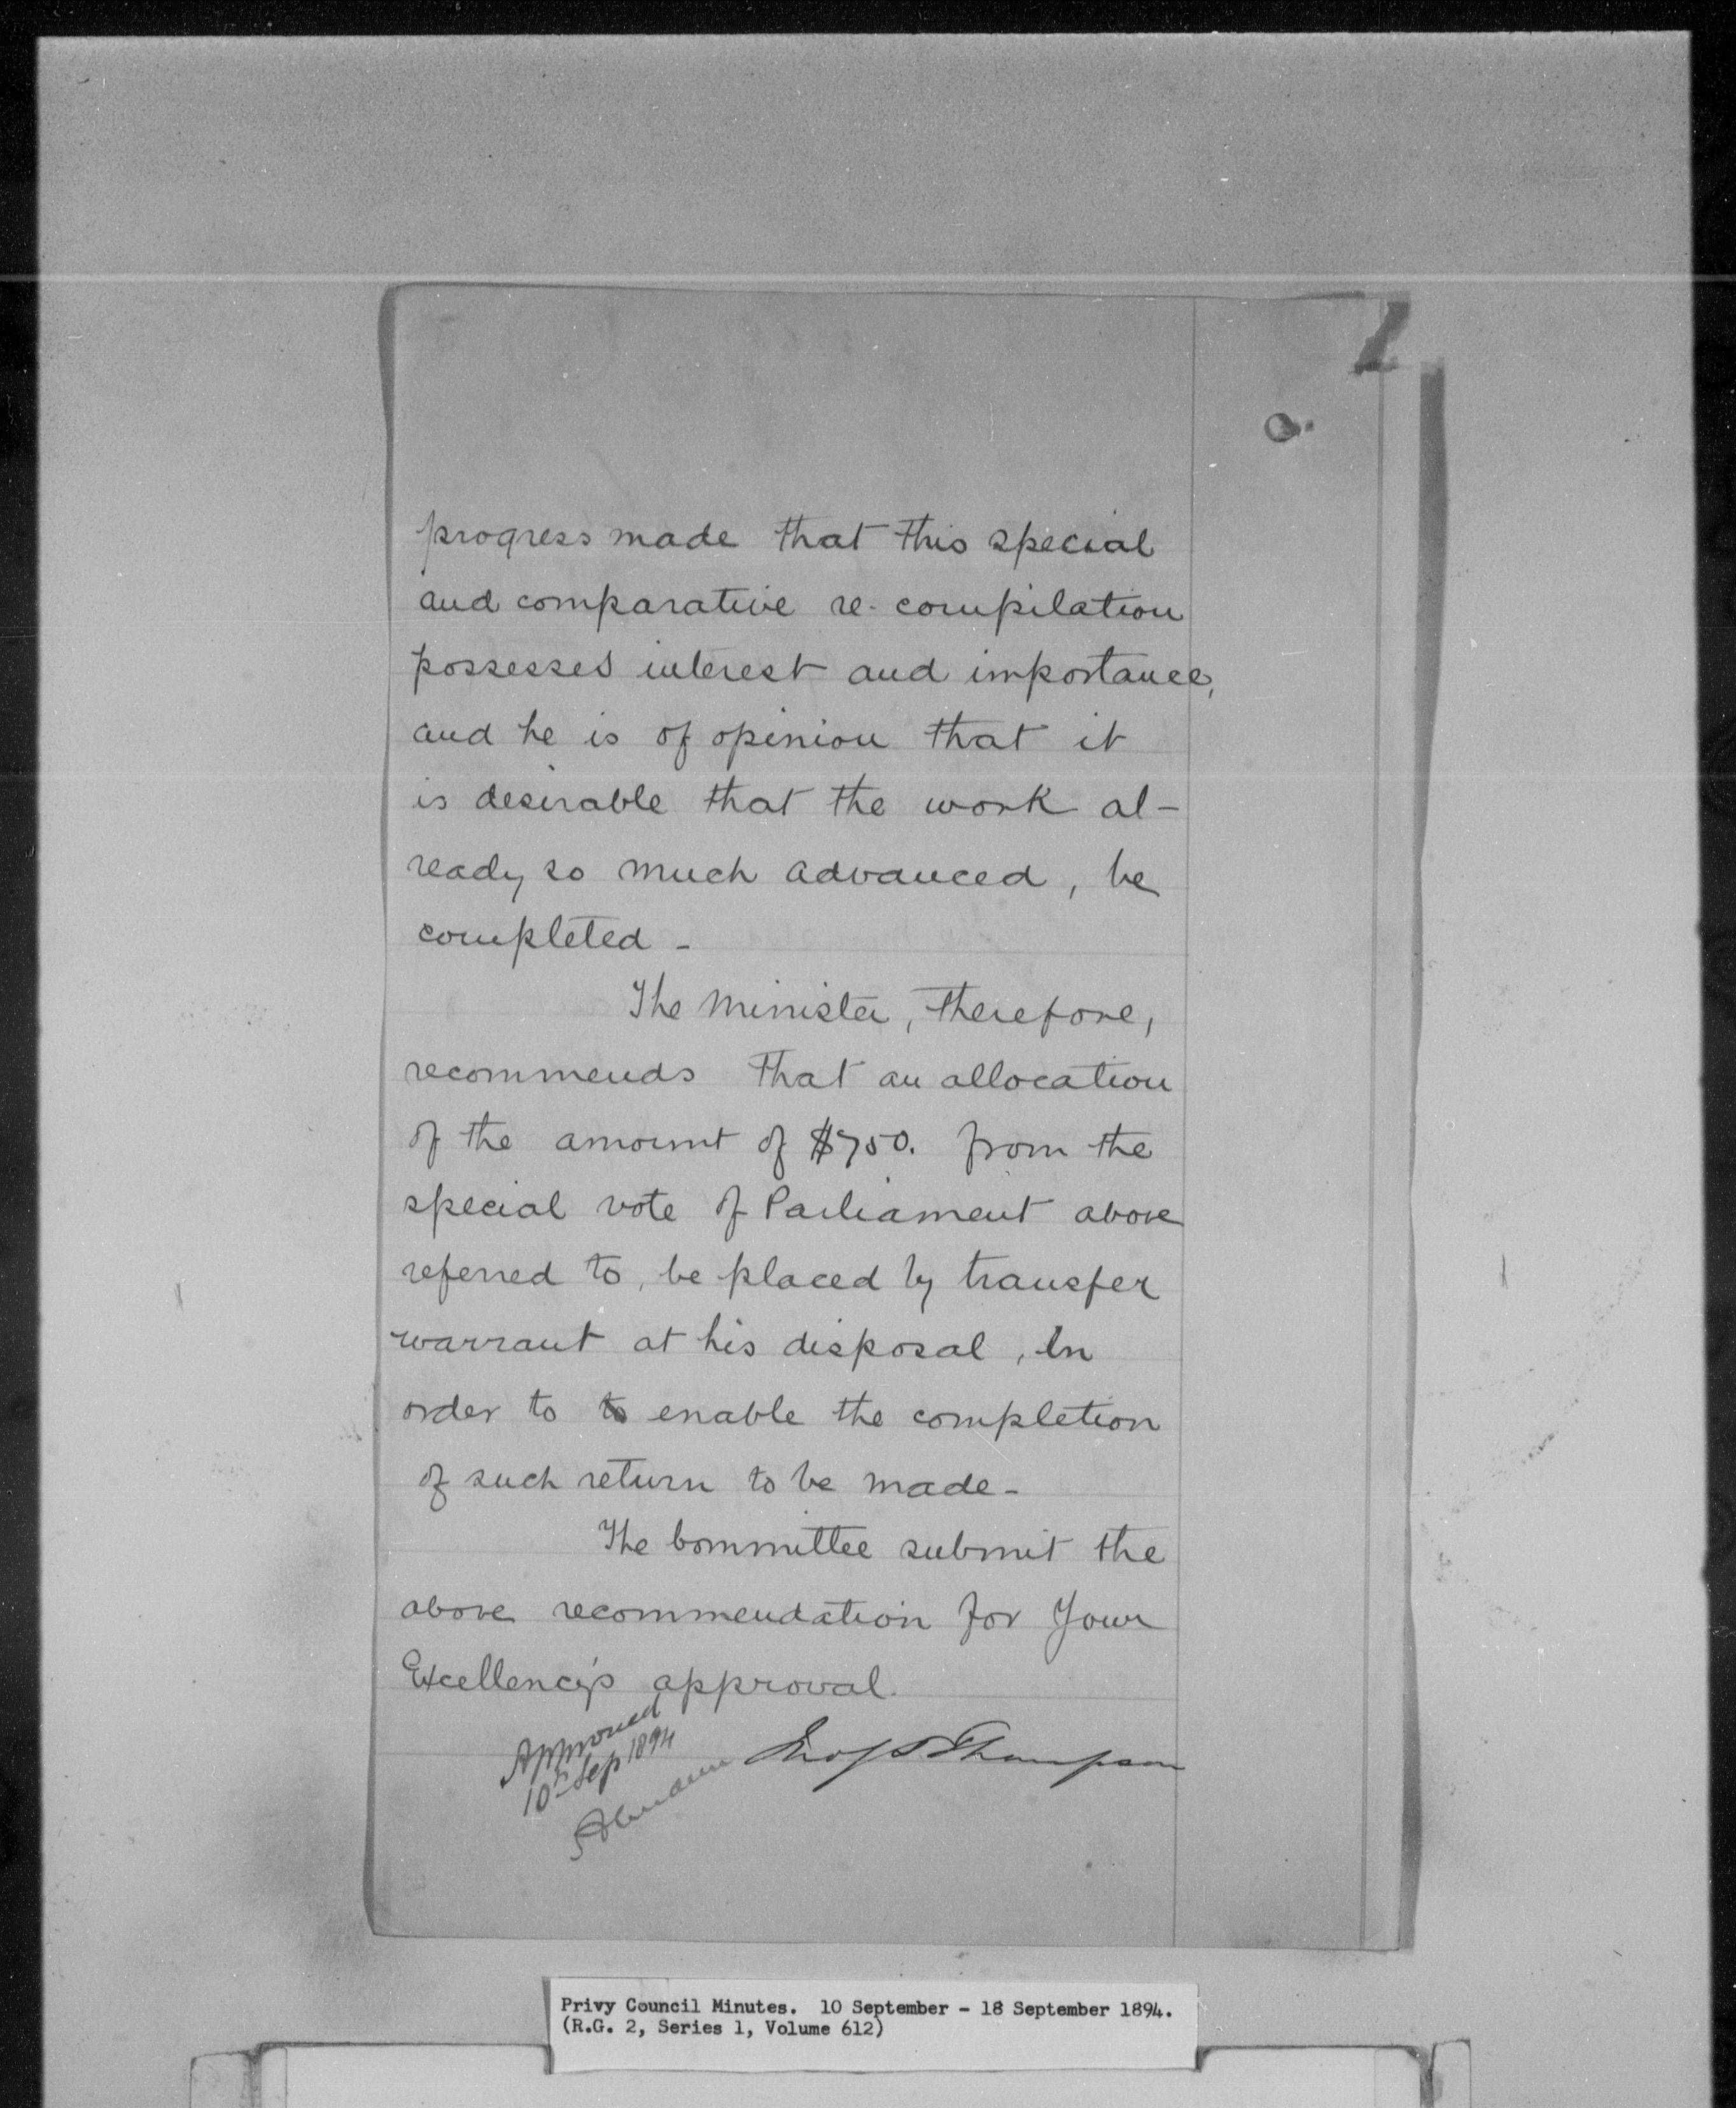 progress made that this special
and comparative re-compilation
possesses interest and importance,
and he is of opinion that it
is desirable that the work al-
ready so much advanced, be
completed -
The Minister, therefore,
recommends that an allocation
of the amount of $750. from the
special vote of Parliament above
referred to, be placed by transfer
warrant at his disposal, in
order to to enable the completion
of such return to be made -
The Committee submit the
above recommendation for Your
Excellency's approval.
Jno S D Thompson
Approved
10th Sep 1894
Privy Council Minutes. 10 September - 18 September 1894.
(R.G. 2, Series 1, Volume 612)